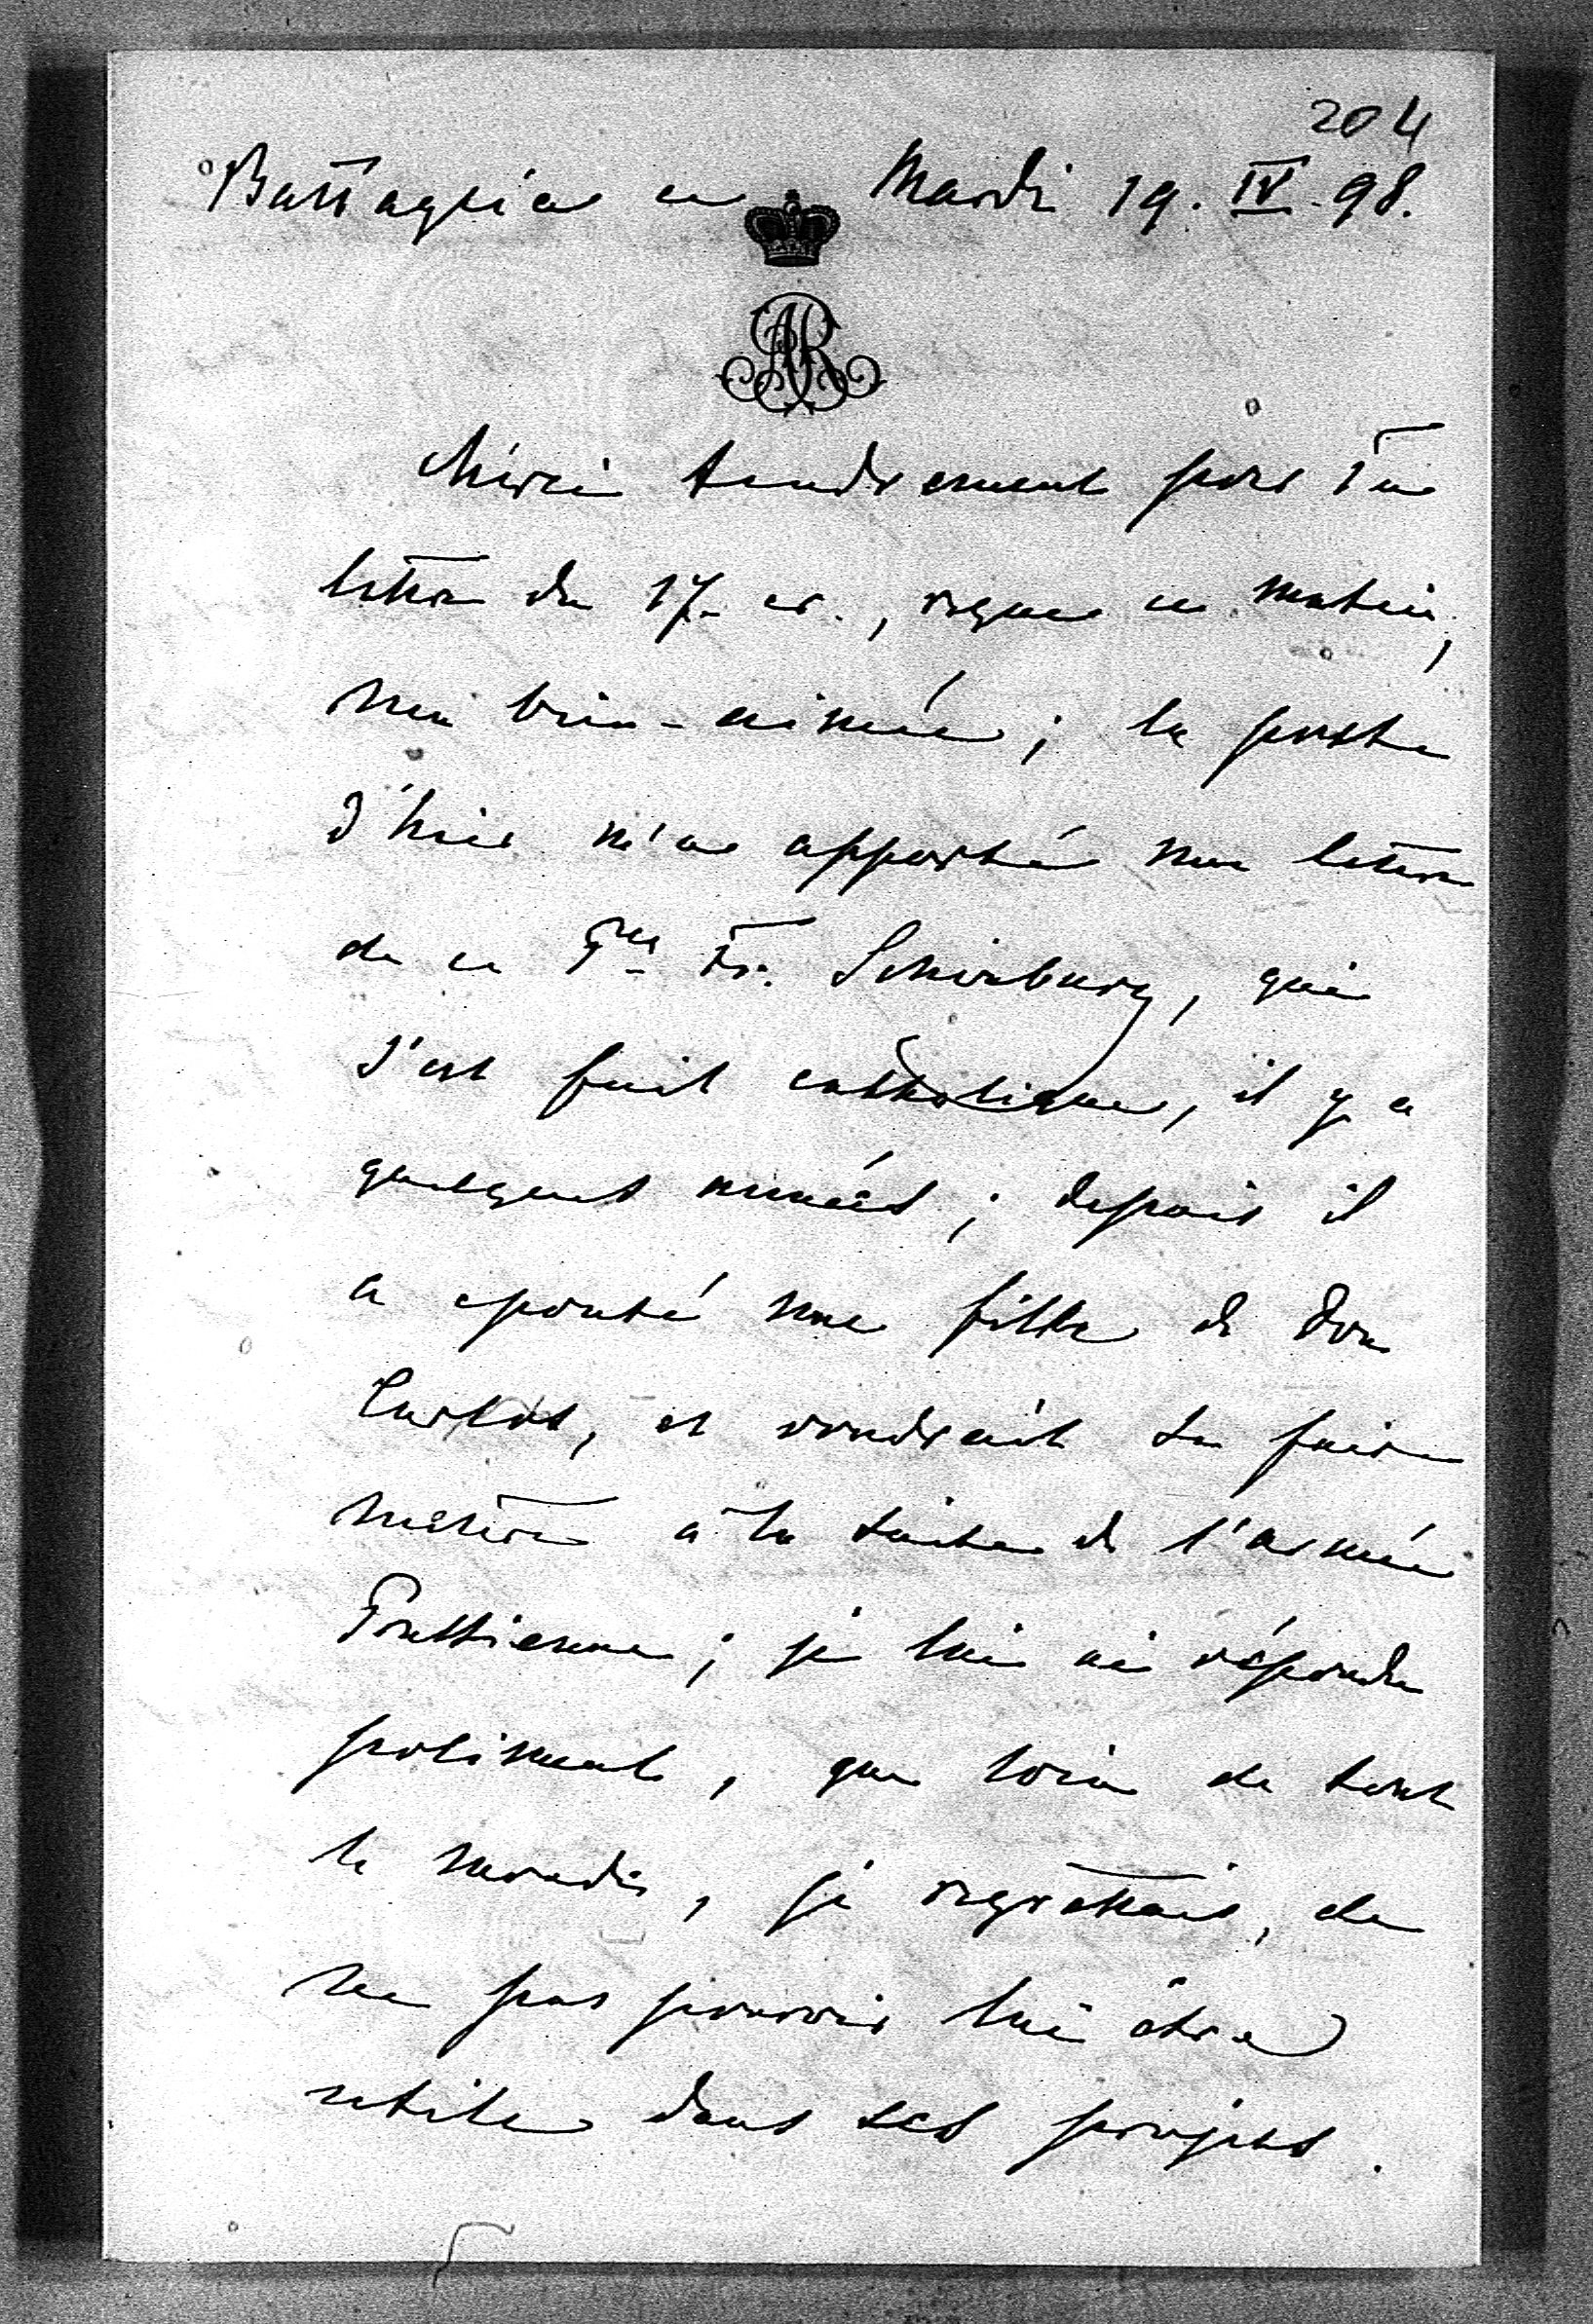 204
Battaglia ce Mardi 19. IV. 98.
AR
Merci tendrement pour Ta
lettre du 17. cr., reçue ce matin,
ma bien-aimée; la poste
d'hier m'a apporté une lettre
de ce Pce Fr. Schönburg, qui
s'est fait catholique, il y a
quelques années; depuis il
a epousé une fille de Don
Carlos, et voudrait se faire
mettre à la suite de l'armée
Prussienne; je lui ai répondu
poliment, que loin de tout
le monde, je regrettais, de
ne pas pouvoir lui être
utile dans ses projets.